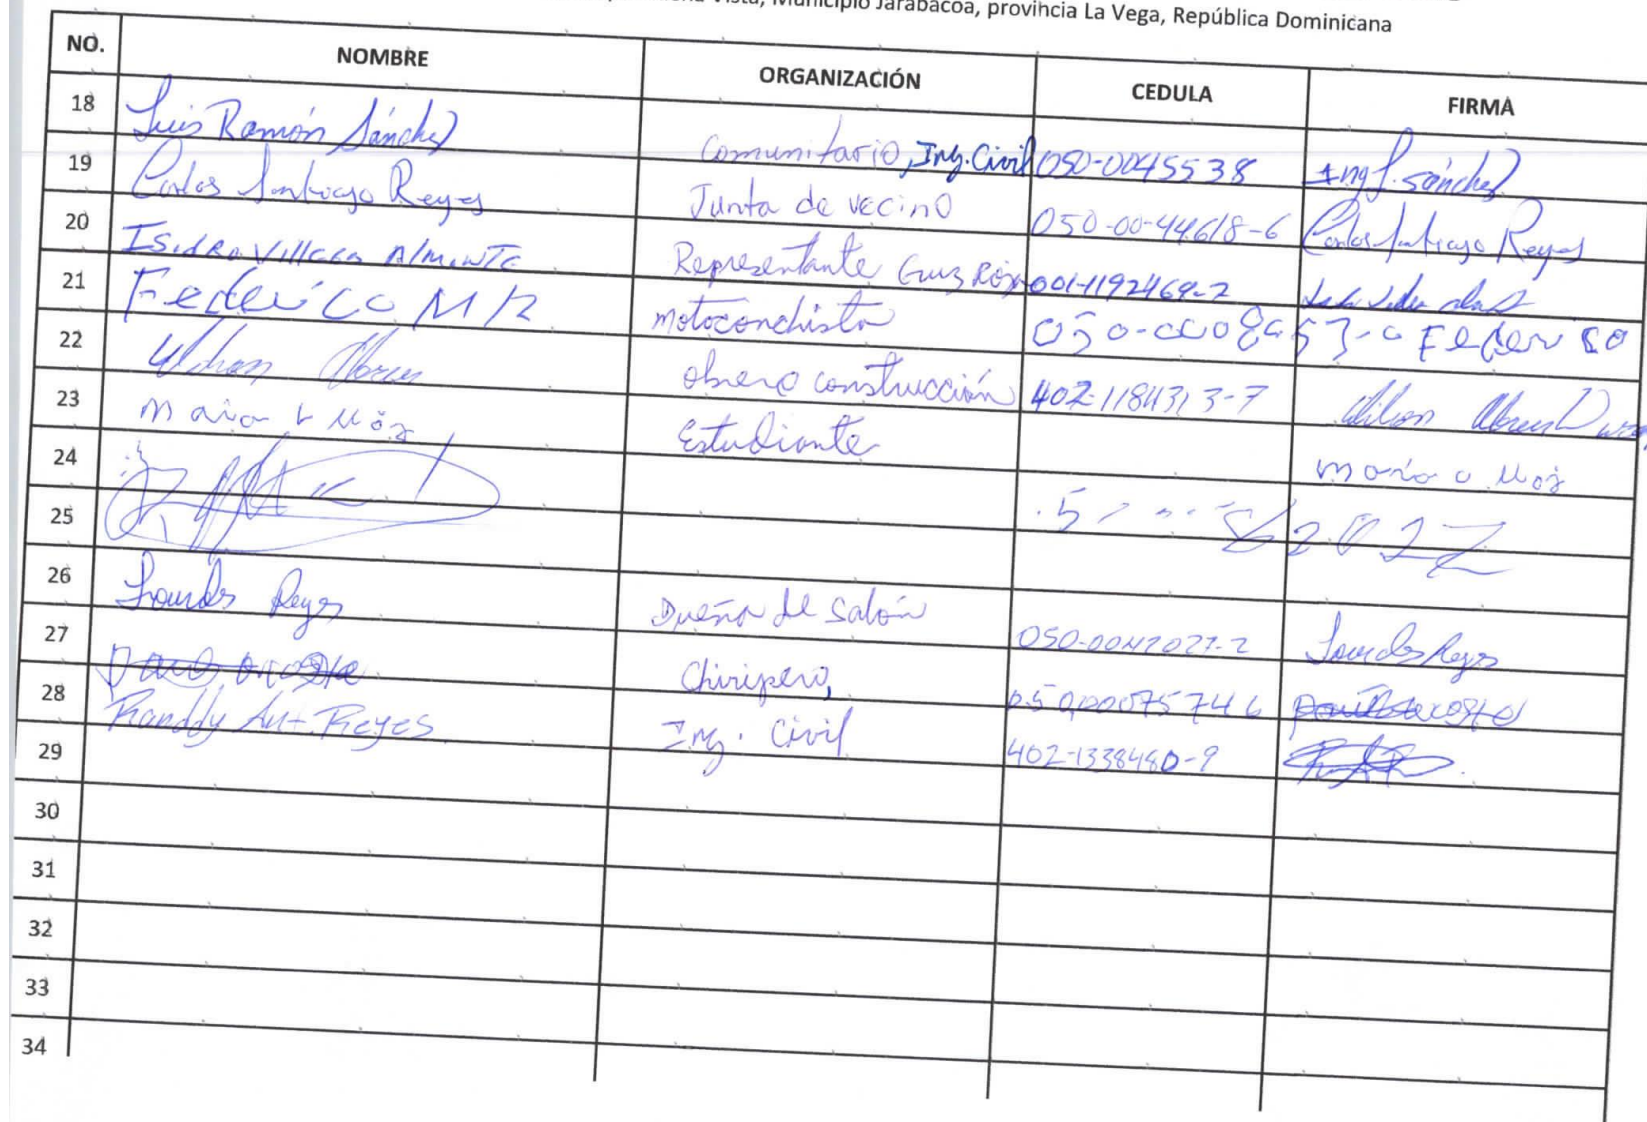 Vista, Municipio Jarabacoa, provincia La Vega, República Dominicana
NO. NOMBRE ORGANIZACIÓN CEDULA FIRMA
18 Luis Ramón Sánchez Comunitario, Ing. Civil 050-0045538 Ing L. Sánchez
19 Carlos Santiago Reyes Junta de vecino 050-00-44618-6 Carlos Santiago Reyes
20 Isidro Villega Almonte Representante Cruz Roja 001-1192469-2
21 Federico M R motoconchista Federico
22 Wilson Abreu obrero construcción 402-1184313-7 Wilson Abreu
23 Maria Estudiante Maria
24
25
26 Lourdes Reyes Dueña de Salón 050-0047027-2 Lourdes Reyes
27 Chiripero, 05000075746
28 Randdy Ant. Reyes Ing. Civil 402-1338480-9
29
30
31
32
33
34